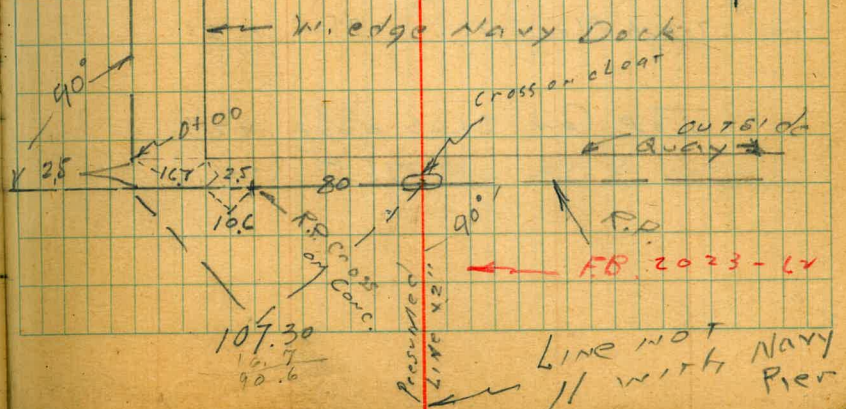 W. edge Navy Dock
90°
Cross on cleat
0+00
outside
Quay
25
16.7
2.5
80
10.6
90°
R.P.
R.P. Cross
on Conc.
F.B. 2023-
107.30
16.7
90.6
Presumed
Line x2"
Line not
// with Navy
Pier